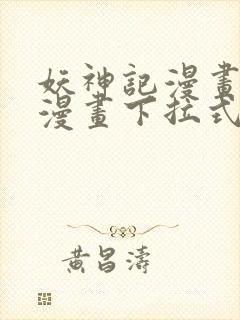 妖神記漫畫
漫畫下拉式
黃昌濤